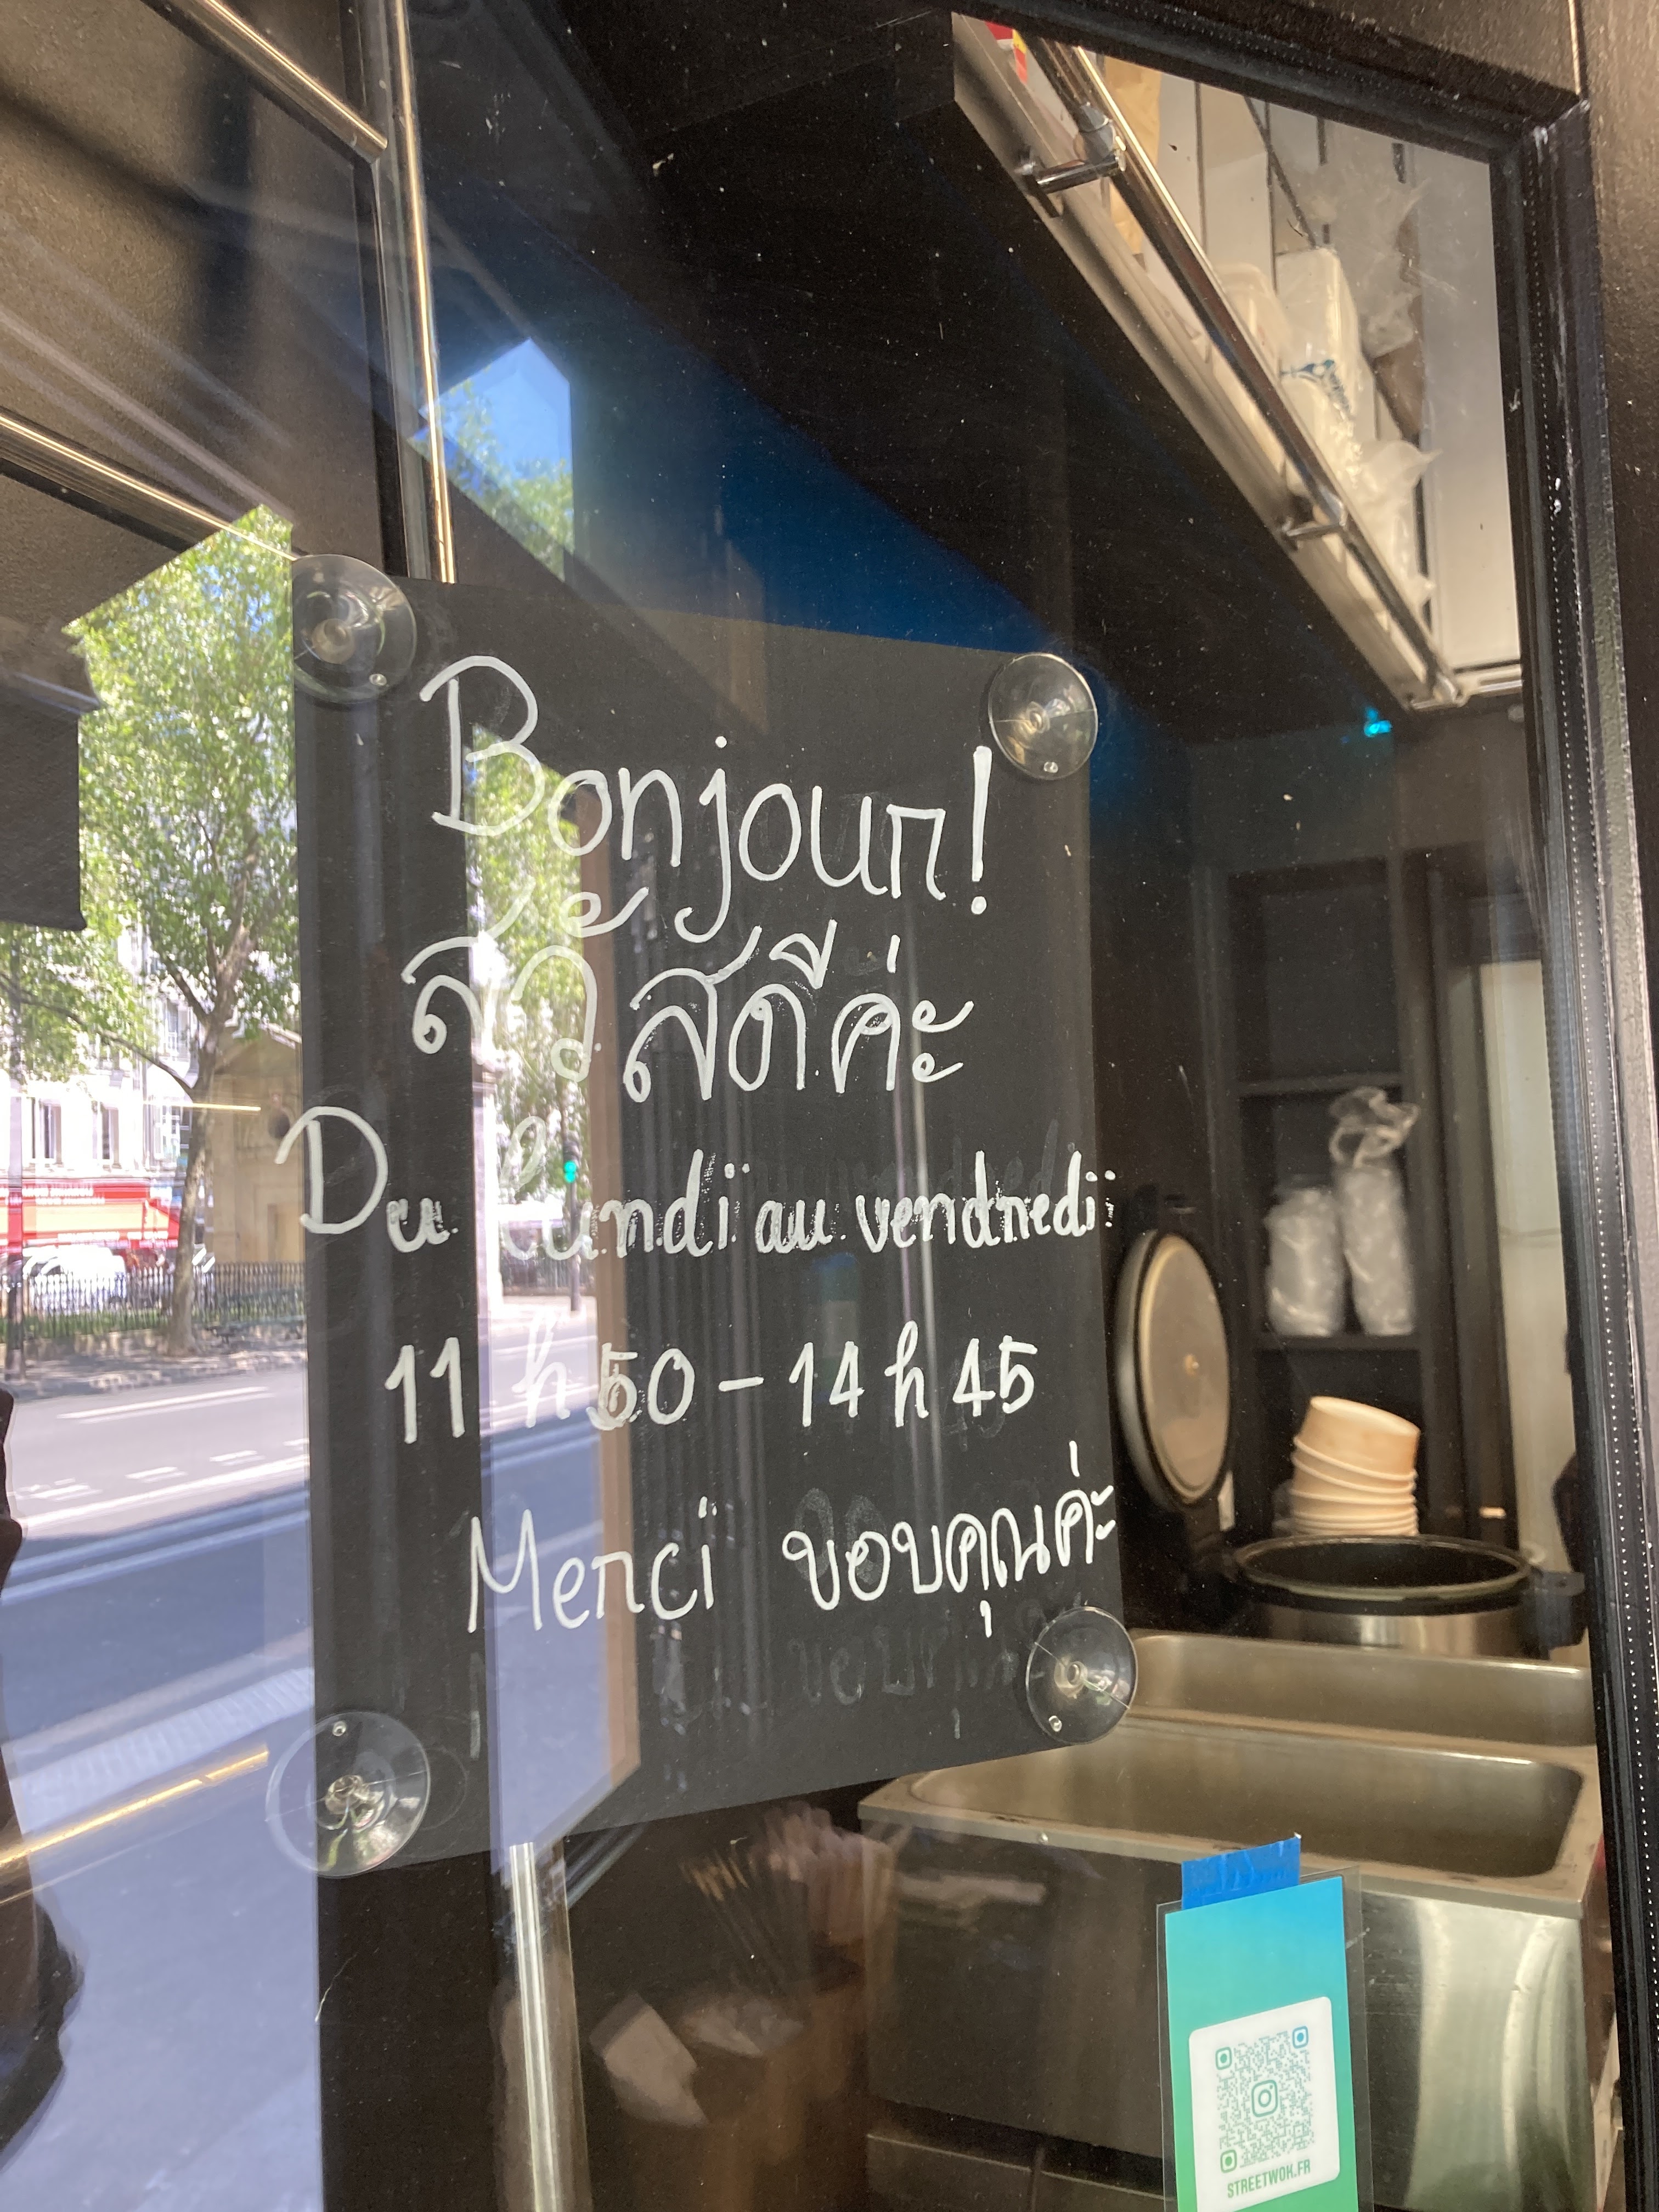 Bonjour!
สวัสดีค่ะ
Du lundi au vendredi:
11 h 50 - 14 h 45
Merci ขอบคุณค่ะ
STREETWOK.FR